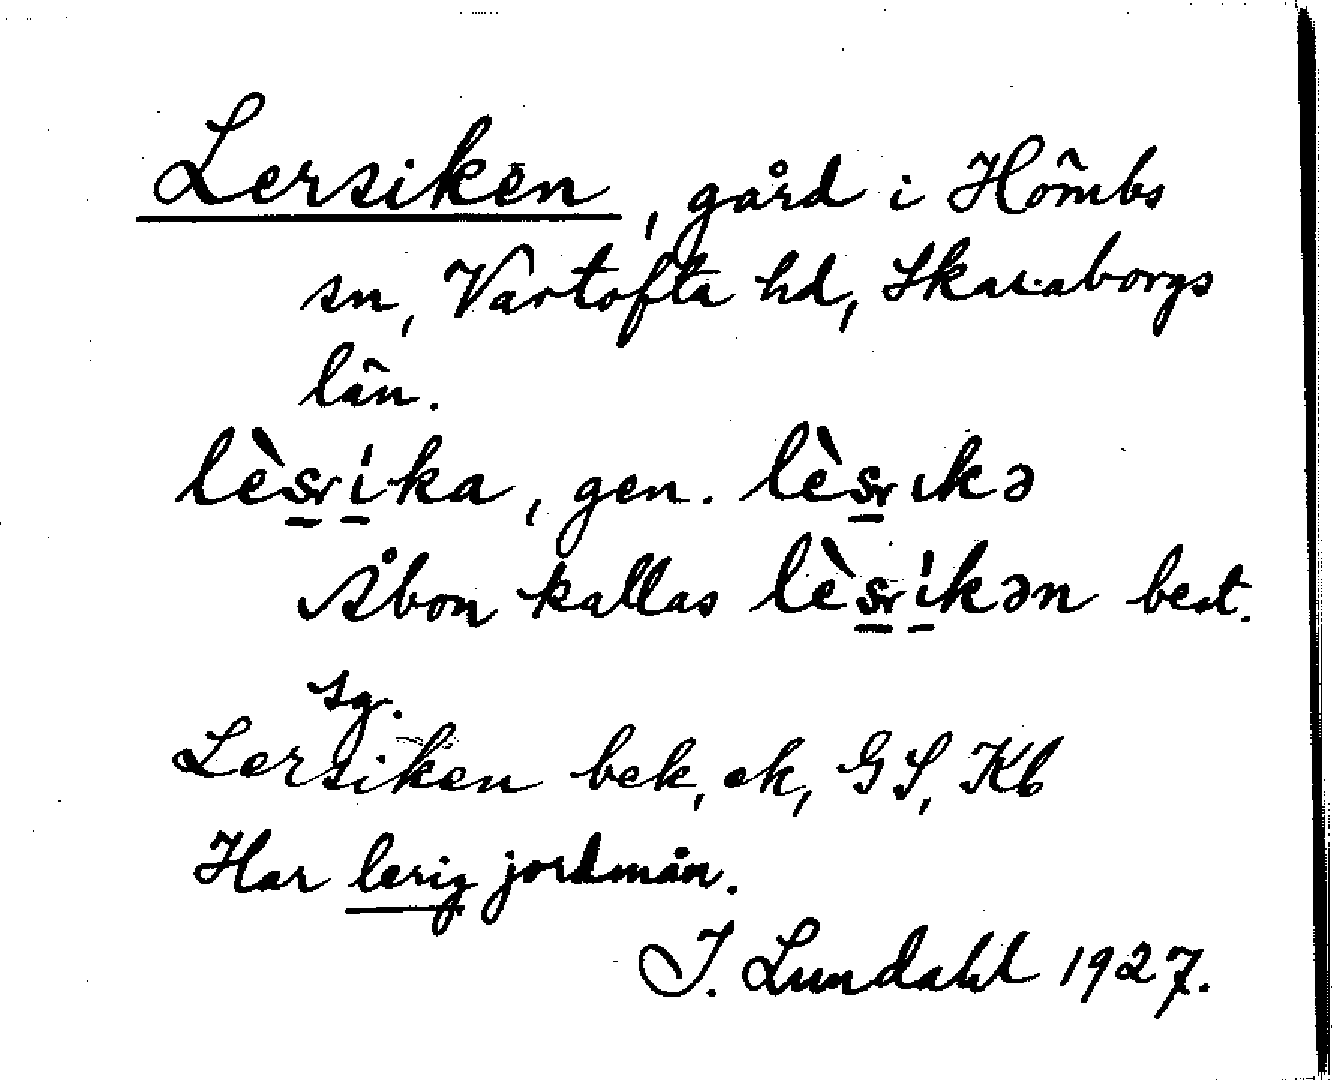 Lersiken, gård i Hömbs
sn, Vartofta hd, Skaraborgs
län.
lèsrika, gen. lèsrıkə
Åbon kallas lèsrikən best.
sg.
Lersiken bek, ek, GS, Kb
Har lerig jordmån.
I. Lundahl 1927.